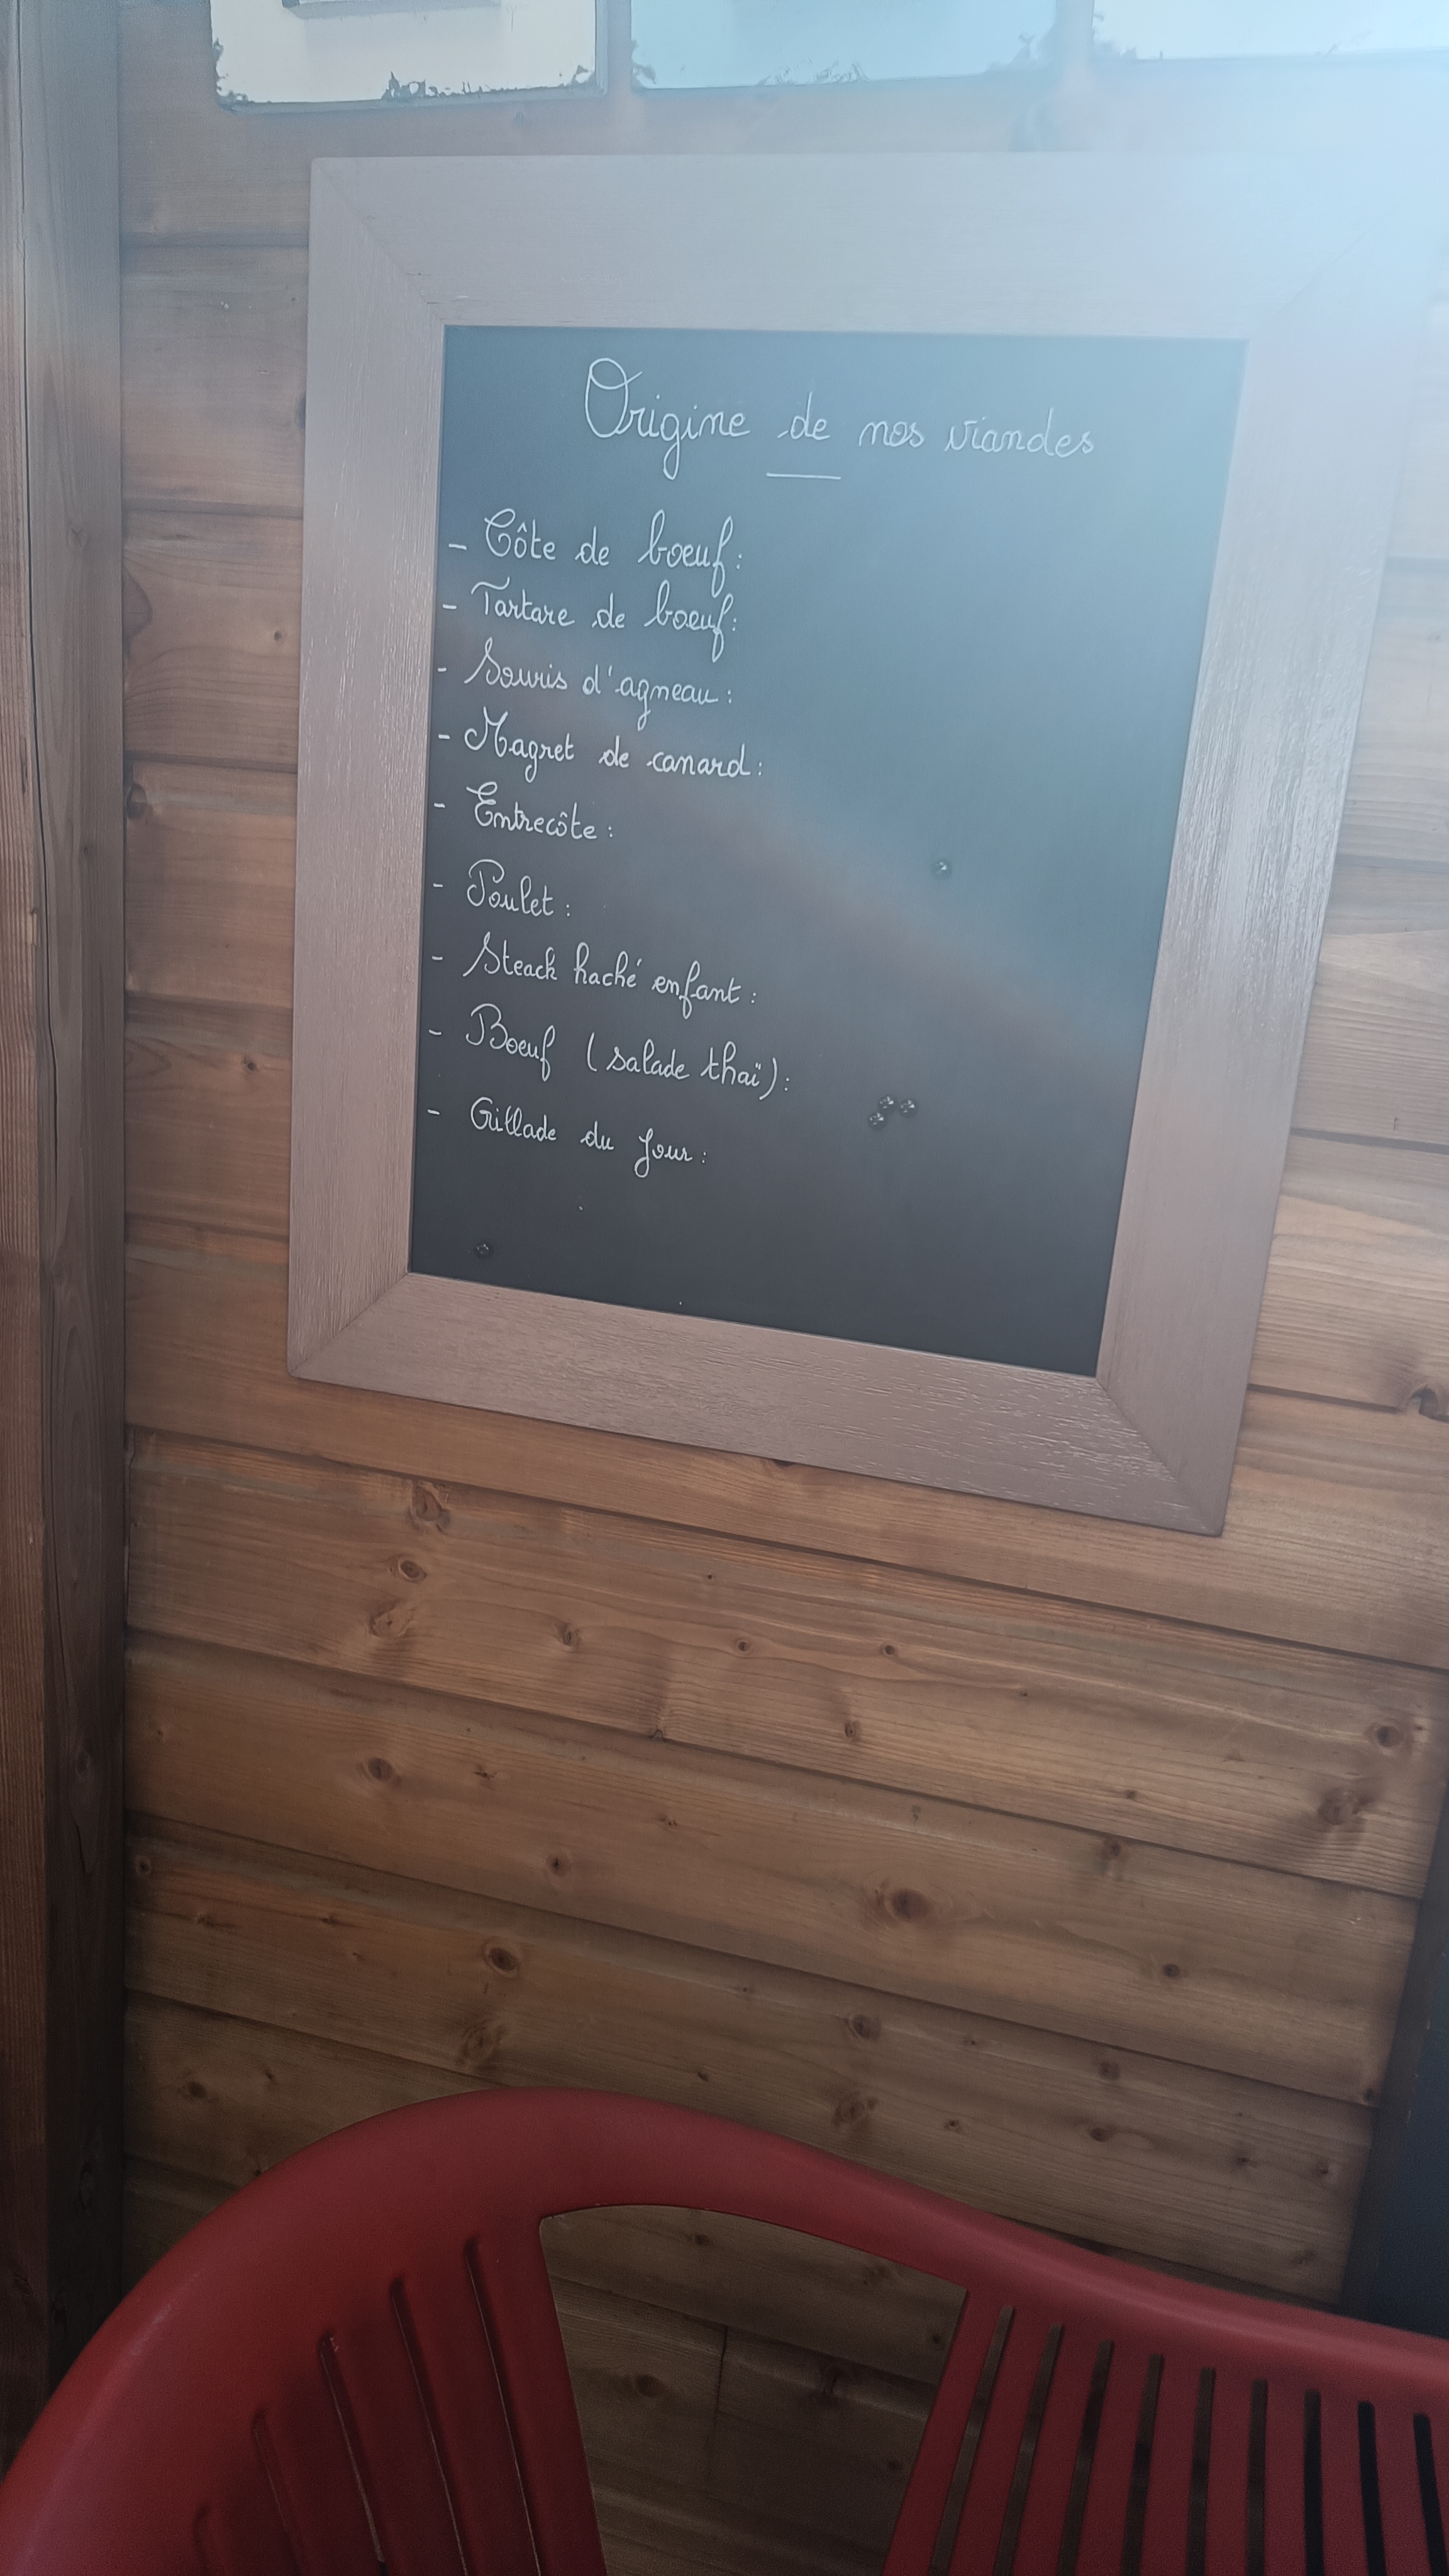 Origine de nos viandes
- Côte de boeuf :
- Tartare de boeuf :
- Souris d'agneau :
- Magret de canard :
- Entrecôte :
- Poulet :
- Steack haché enfant :
- Boeuf (salade thaï) :
- Grillade du jour :